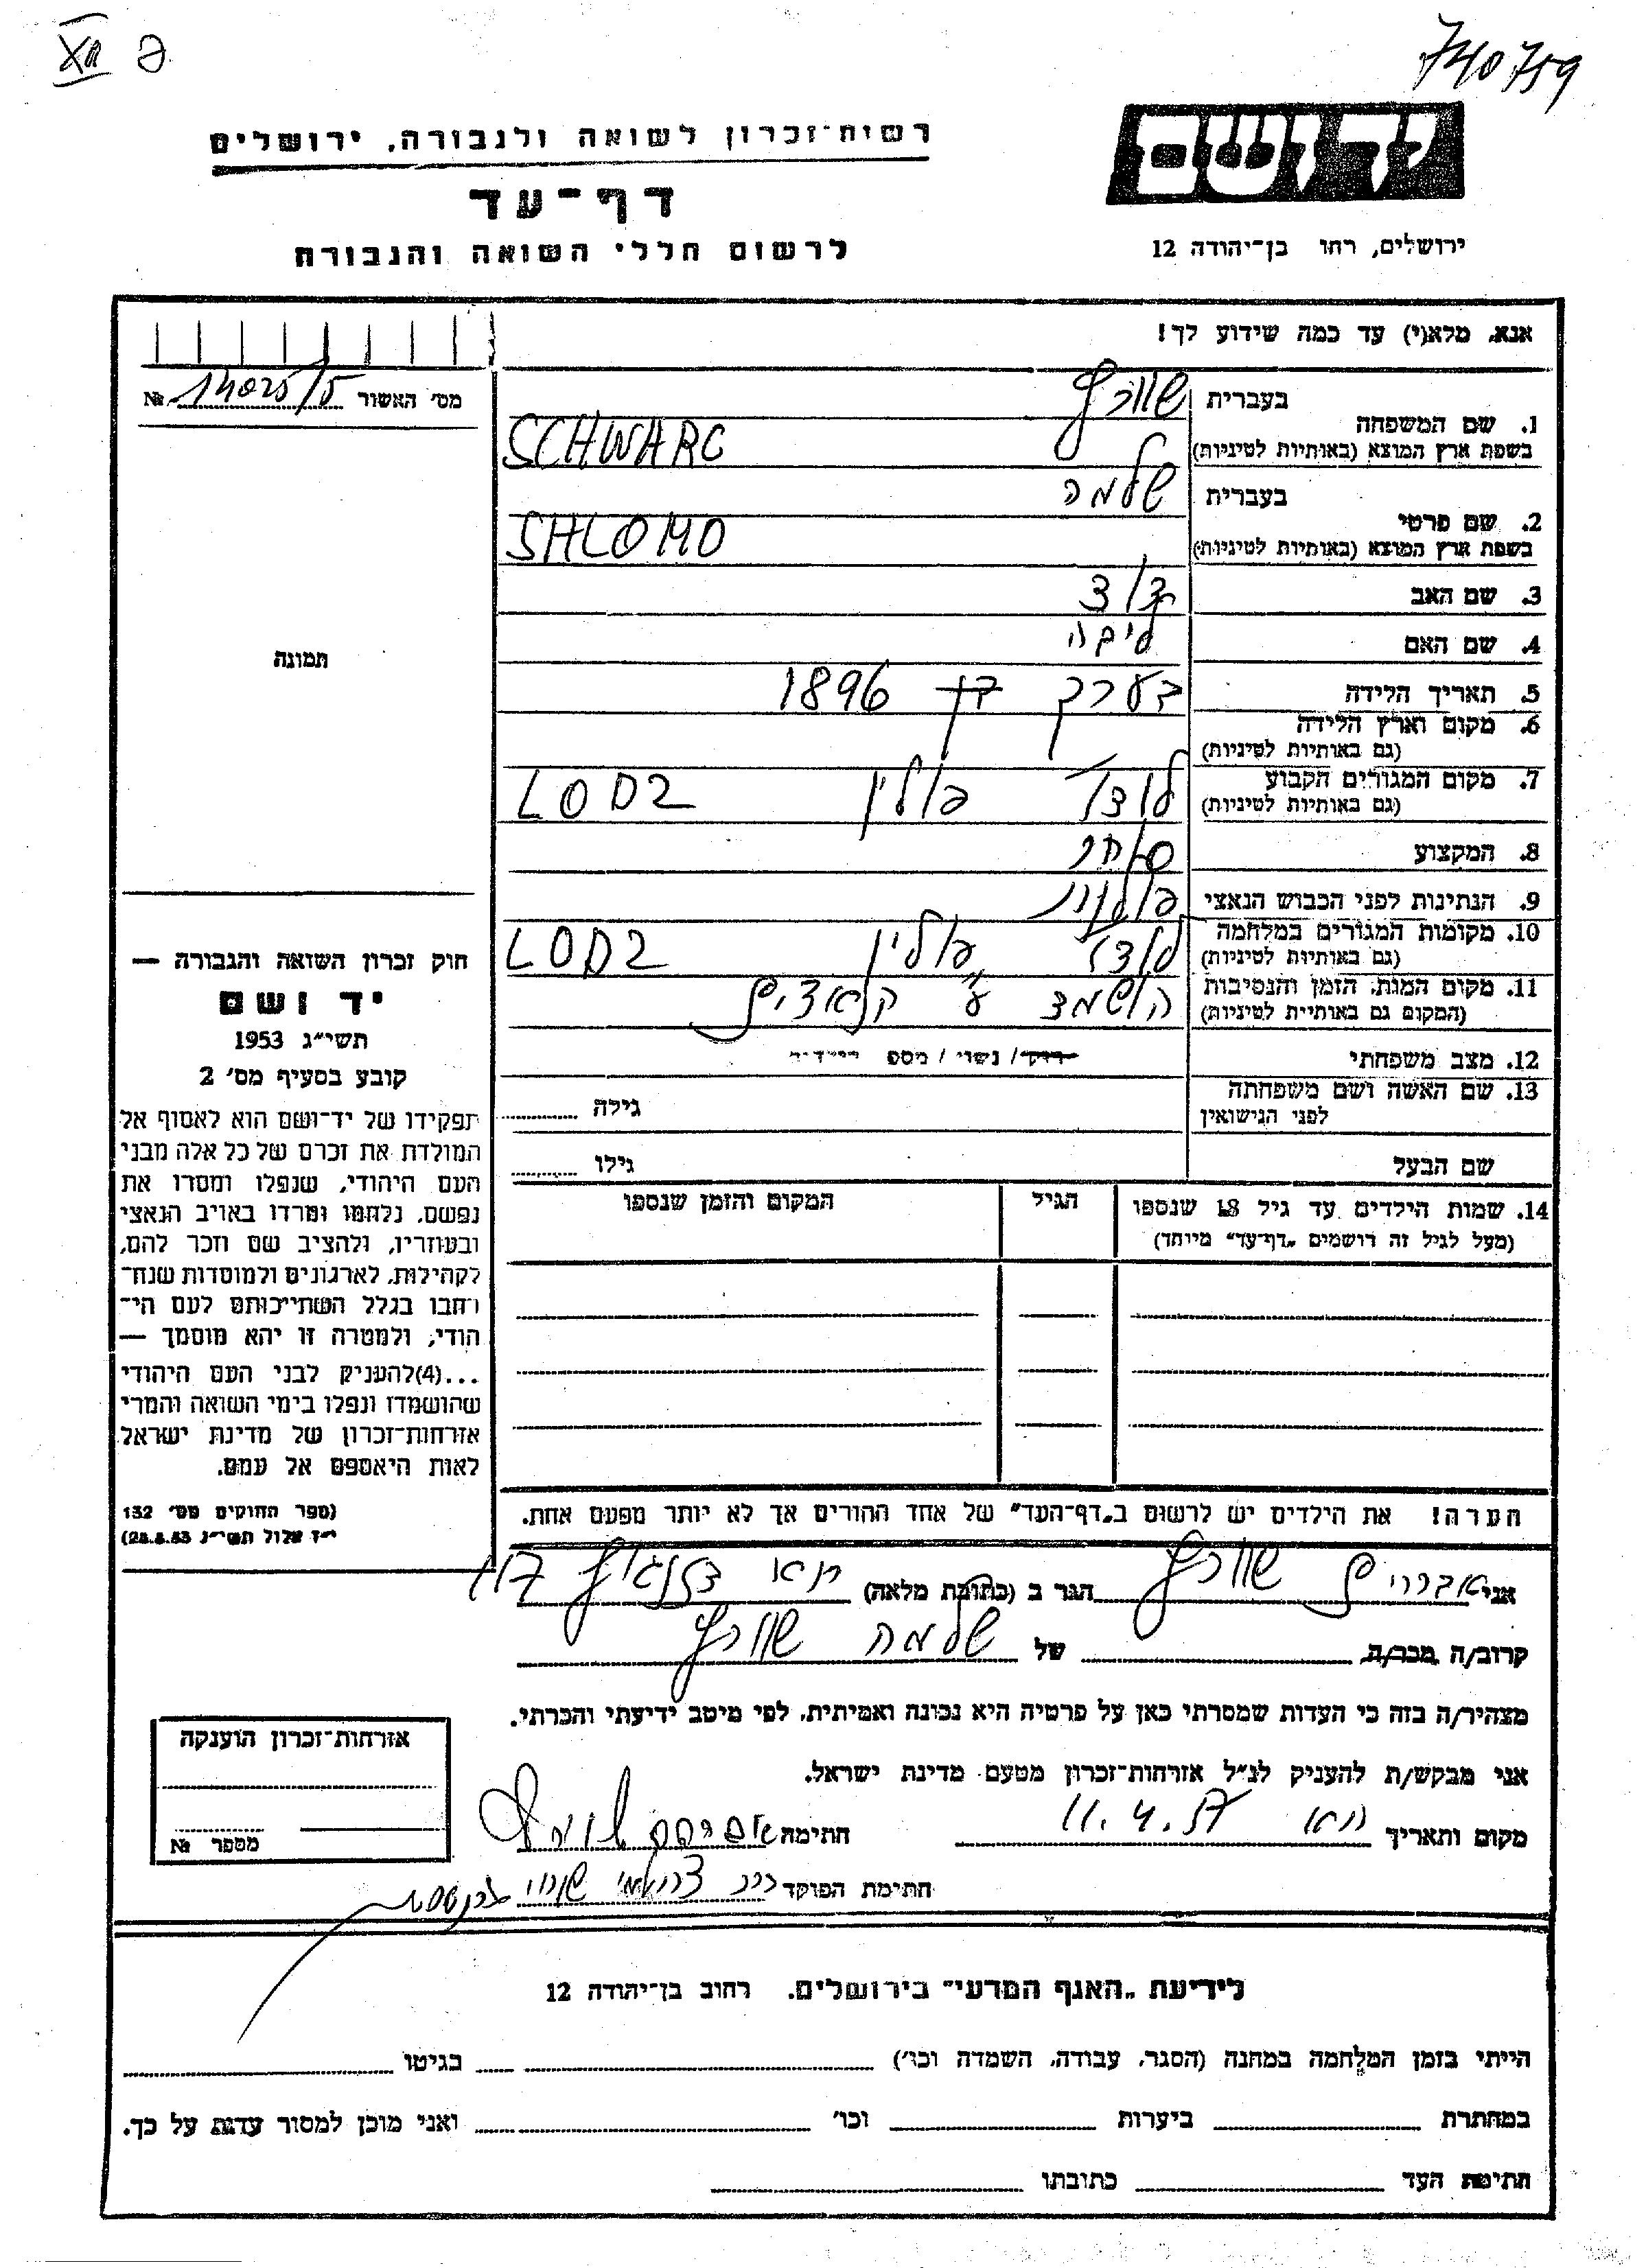 740759
XII
רשות־זכרון לשואה ולגבורה, ירושלים
יד ושם
דף־עד
ירושלים, רחו בן־יהודה 12
לרשום חללי השואה והגבורה
אנא, מלא(י) עד כמה שידוע לך!
מס' האשור 14025/5 №
1. שם המשפחה בעברית שוורץ
בשפת ארץ המוצא (באותיות לטיניות) SCHWARC
2. שם פרטי בעברית שלמה
בשפת ארץ המוצא (באותיות לטיניות) SHLOMO
3. שם האב דוד
4. שם האם ליבה
5. תאריך הלידה בערך בן 1896
6. מקום וארץ הלידה
(גם באותיות לטיניות)
7. מקום המגורים הקבוע לודז' פולין LODZ
(גם באותיות לטיניות)
8. המקצוע סוחר
9. הנתינות לפני הכבוש הנאצי פולנית
10. מקומות המגורים במלחמה לודז' פולין LODZ
(גם באותיות לטיניות)
11. מקום המות, הזמן והנסיבות הושמד ע"י הנאצים
(המקום גם באותיות לטיניות)
12. מצב משפחתי רוק/ נשוי / מספ הילדים
13. שם האשה ושם משפחתה גילה
לפני הנישואין
שם הבעל גילו
14. שמות הילדים עד גיל 18 שנספו הגיל המקום והזמן שנספו
(מעל לגיל זה רושמים „דף־עד" מיוחד)
הערה! את הילדים יש לרשום ב„דף־העד" של אחד ההורים אך לא יותר מפעם אחת.
תמונה
חוק זכרון השואה והגבורה —
יד ושם
תשי"ג 1953
קובע בסעיף מס' 2
תפקידו של יד־ושם הוא לאסוף אל
המולדת את זכרם של כל אלה מבני
העם היהודי, שנפלו ומסרו את
נפשם, נלחמו ומרדו באויב הנאצי
ובעוזריו, ולהציב שם וזכר להם,
לקהילות, לארגונים ולמוסדות שנח־
רחבו בגלל השתייכותם לעם הי־
הודי, ולמטרה זו יהא מוסמך —
...(4)להעניק לבני העם היהודי
שהושמדו ונפלו בימי השואה והמרי
אזרחות־זכרון של מדינת ישראל
לאות היאספם אל עמם.
(ספר החוקים מס' 132
י"ז אלול תשי"ג 28.8.53)
אני אברהים שוורץ הגר ב (כתובת מלאה) 117
קרוב/ה מכר/ה של שלמה שוורץ
מצהיר/ה בזה כי העדות שמסרתי כאן על פרטיה היא נכונה ואמיתית, לפי מיטב ידיעתי והכרתי.
אני מבקש/ת להעניק לנ"ל אזרחות־זכרון מטעם מדינת ישראל.
מקום ותאריך 11.4.57 חתימה אברהם שוורץ
חתימת הפוקד
אזרחות־זכרון הוענקה
מספר №
לידיעת „האגף המדעי" בירושלים. רחוב בן־יהודה 12
הייתי בזמן המלחמה במחנה (הסגר, עבודה, השמדה וכו') בגיטו
במחתרת ביערות וכו' ואני מוכן למסור עדות על כך.
חתימת העד כתובתו